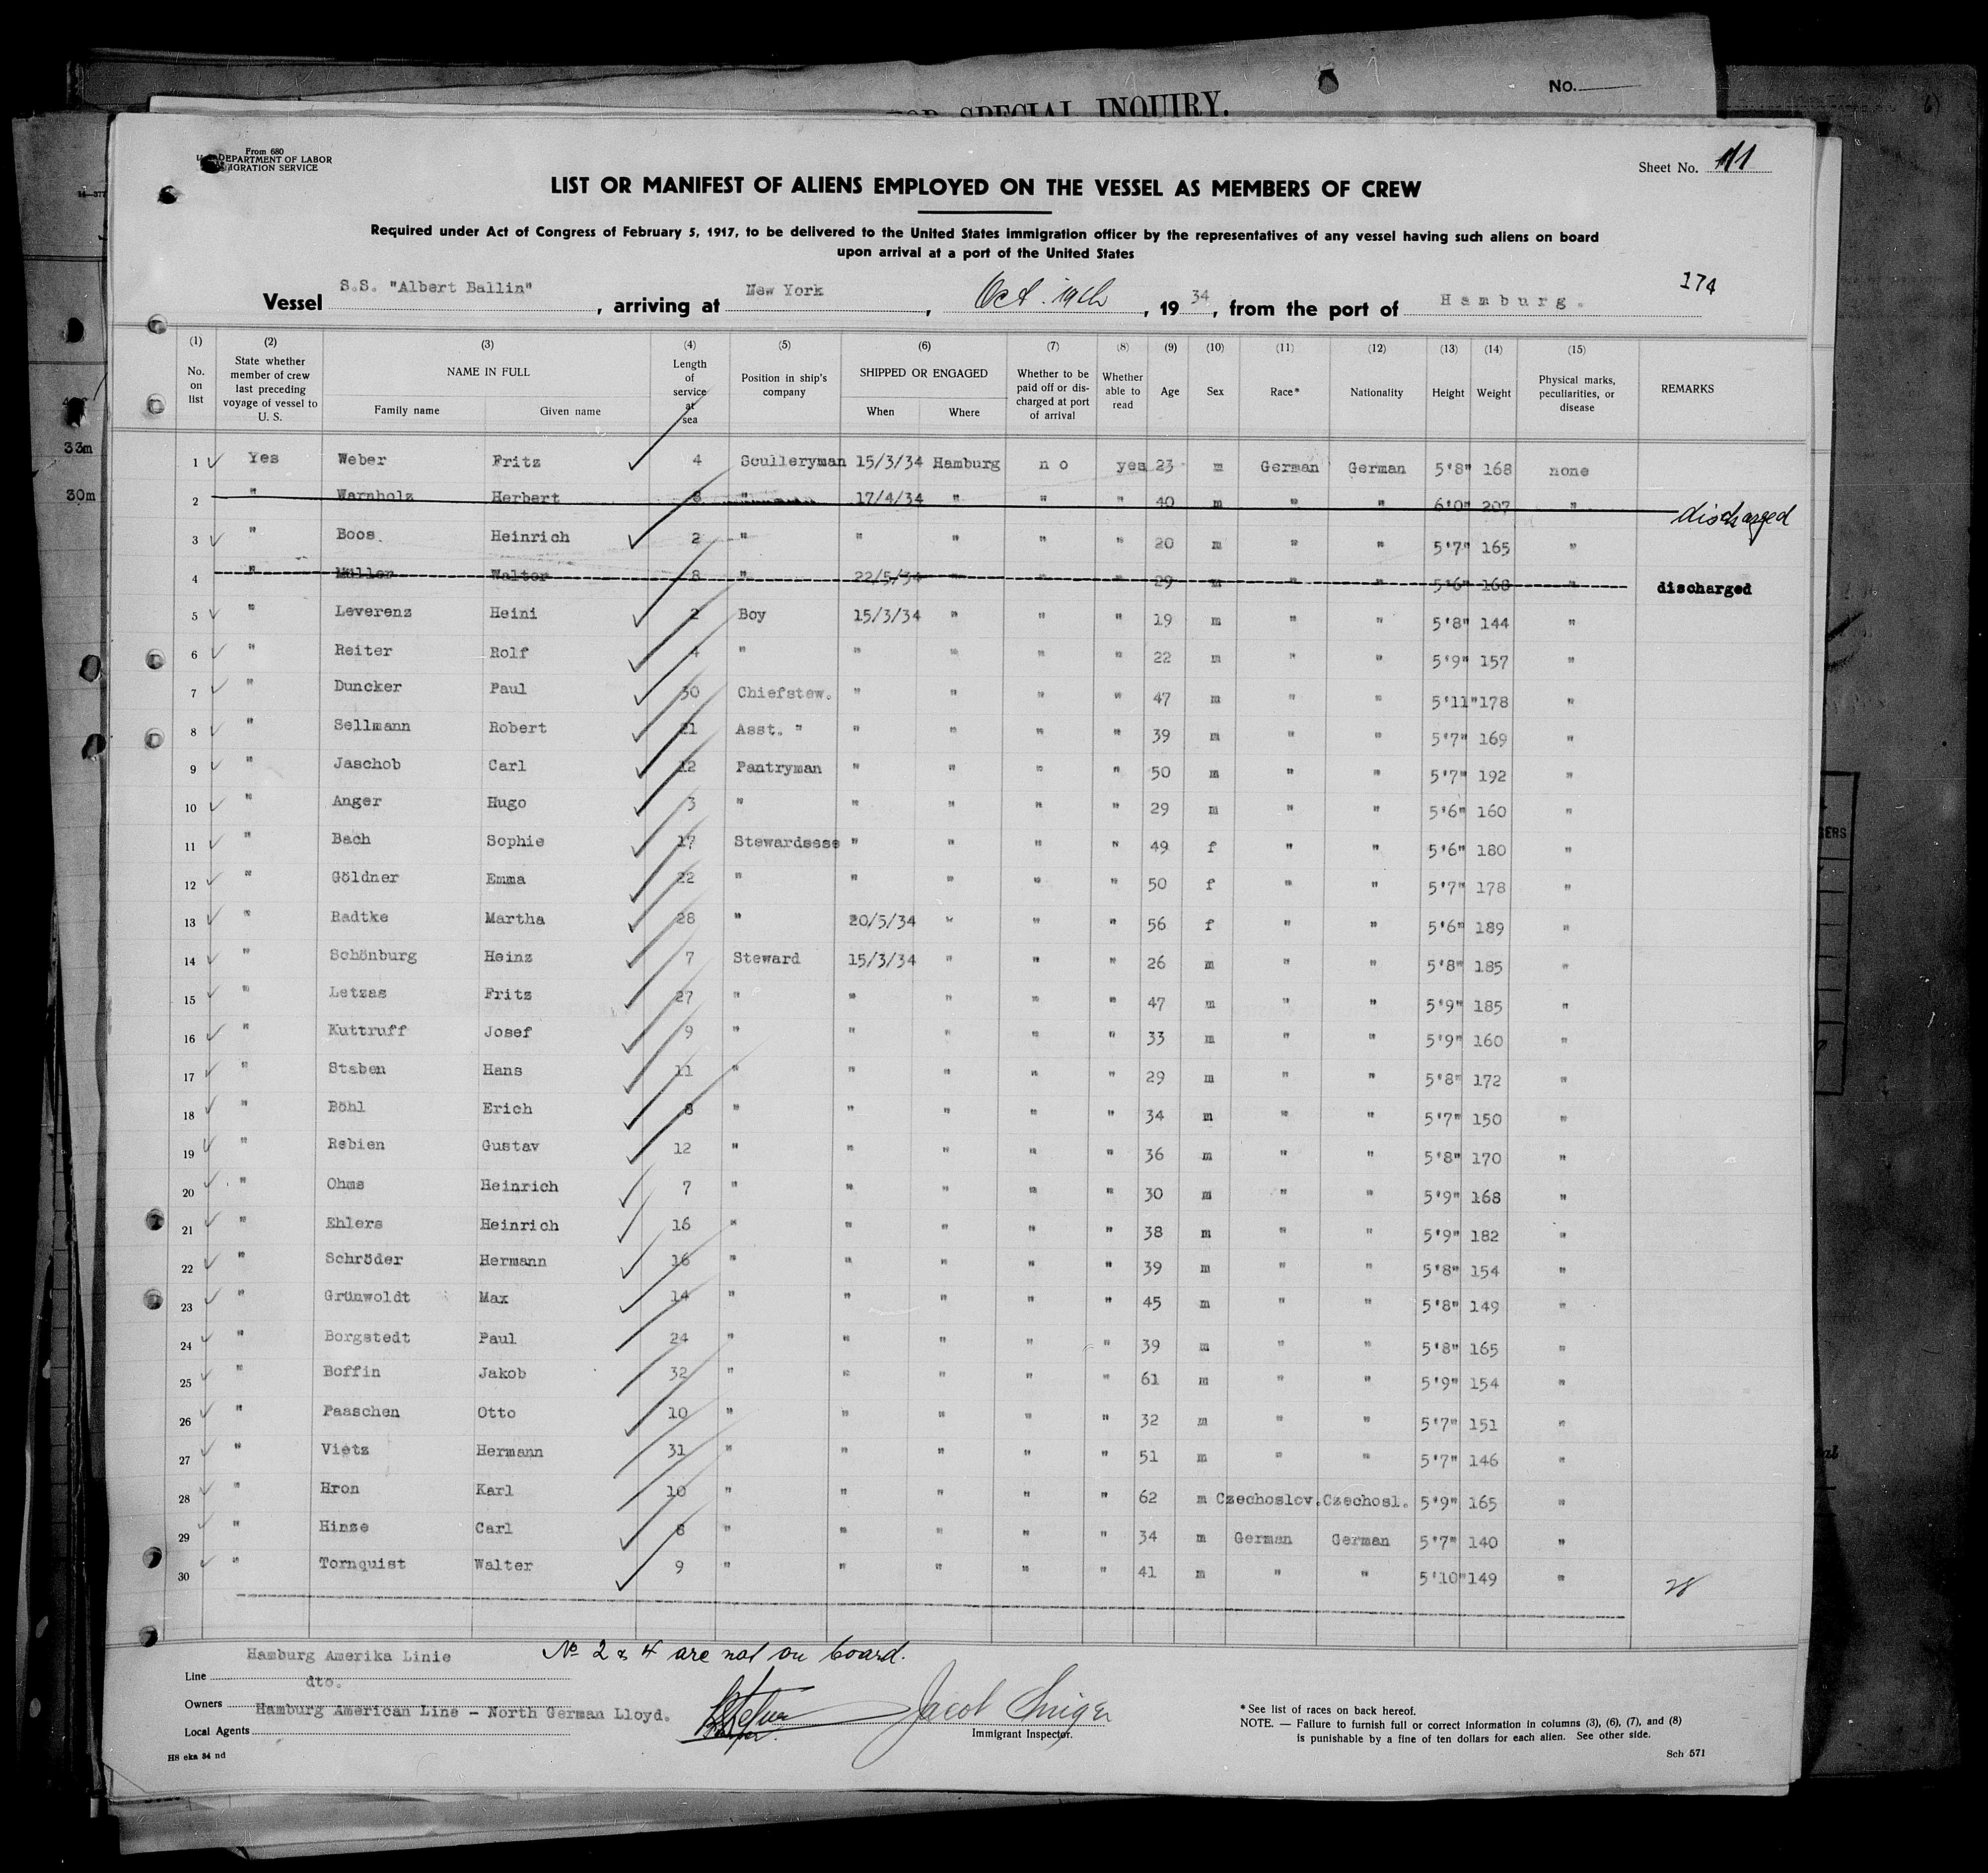 No.
FOR SPECIAL INQUIRY.
From 680
DEPARTMENT OF LABOR
IMMIGRATION SERVICE
Sheet No. 11
LIST OR MANIFEST OF ALIENS EMPLOYED ON THE VESSEL AS MEMBERS OF CREW
Required under Act of Congress of February 5, 1917, to be delivered to the United States immigration officer by the representatives of any vessel having such aliens on board
upon arrival at a port of the United States
174
Vessel S.S. "Albert Ballin", arriving at New York, Oct. 19th, 1934, from the port of Hamburg.
(1) (2) (3) (4) (5) (6) (7) (8) (9) (10) (11) (12) (13) (14) (15)
No. on list | State whether member of crew last preceding voyage of vessel to U. S. | NAME IN FULL | Length of service at sea | Position in ship's company | SHIPPED OR ENGAGED | Whether to be paid off or discharged at port of arrival | Whether able to read | Age | Sex | Race* | Nationality | Height | Weight | Physical marks, peculiarities, or disease | REMARKS
Family name | Given name | When | Where
33m
30m
1 Yes Weber Fritz 4 Sculleryman 15/3/34 Hamburg no yes 23 m German German 5'8" 168 none
2 " Warnholz Herbert 8 " 17/4/34 " " " 40 m " " 6'0" 207 " discharged
3 " Boos Heinrich 2 " " " " " 20 m " " 5'7" 165 "
4 " Müller Walter 8 " 22/5/34 " " " 29 m " " 5'6" 168 " discharged
5 " Leverenz Heini 2 Boy 15/3/34 " " " 19 m " " 5'8" 144 "
6 " Reiter Rolf 4 " " " " " 22 m " " 5'9" 157 "
7 " Duncker Paul 30 Chiefstew. " " " " 47 m " " 5'11" 178 "
8 " Sellmann Robert 21 Asst. " " " " " 39 m " " 5'7" 169 "
9 " Jaschob Carl 12 Pantryman " " " " 50 m " " 5'7" 192 "
10 " Anger Hugo 3 " " " " " 29 m " " 5'6" 160 "
11 " Bach Sophie 17 Stewardesse " " " " 49 f " " 5'6" 180 "
12 " Göldner Emma 22 " " " " " 50 f " " 5'7" 178 "
13 " Radtke Martha 28 " 20/5/34 " " " 56 f " " 5'6" 189 "
14 " Schönburg Heinz 7 Steward 15/3/34 " " " 26 m " " 5'8" 185 "
15 " Letzas Fritz 27 " " " " " 47 m " " 5'9" 185 "
16 " Kuttruff Josef 9 " " " " " 33 m " " 5'9" 160 "
17 " Staben Hans 11 " " " " " 29 m " " 5'8" 172 "
18 " Böhl Erich 8 " " " " " 34 m " " 5'7" 150 "
19 " Rebien Gustav 12 " " " " " 36 m " " 5'8" 170 "
20 " Ohms Heinrich 7 " " " " " 30 m " " 5'9" 168 "
21 " Ehlers Heinrich 16 " " " " " 38 m " " 5'9" 182 "
22 " Schröder Hermann 16 " " " " " 39 m " " 5'8" 154 "
23 " Grünwoldt Max 14 " " " " " 45 m " " 5'8" 149 "
24 " Borgstedt Paul 24 " " " " " 39 m " " 5'8" 165 "
25 " Boffin Jakob 32 " " " " " 61 m " " 5'9" 154 "
26 " Paaschen Otto 10 " " " " " 32 m " " 5'7" 151 "
27 " Vietz Hermann 31 " " " " " 51 m " " 5'7" 146 "
28 " Hron Karl 10 " " " " " 62 m Czechoslov. Czechosl. 5'9" 165 "
29 " Hinze Carl 8 " " " " " 34 m German German 5'7" 140 "
30 " Tornquist Walter 9 " " " " " 41 m " " 5'10" 149 "
28
No 2 & 4 are not on board.
Line Hamburg Amerika Linie
Owners dto.
Local Agents Hamburg American Line - North German Lloyd.
Jacob
Immigrant Inspector.
*See list of races on back hereof.
NOTE. — Failure to furnish full or correct information in columns (3), (6), (7), and (8)
is punishable by a fine of ten dollars for each alien. See other side.
H8 eka 34 nd
Sch 571